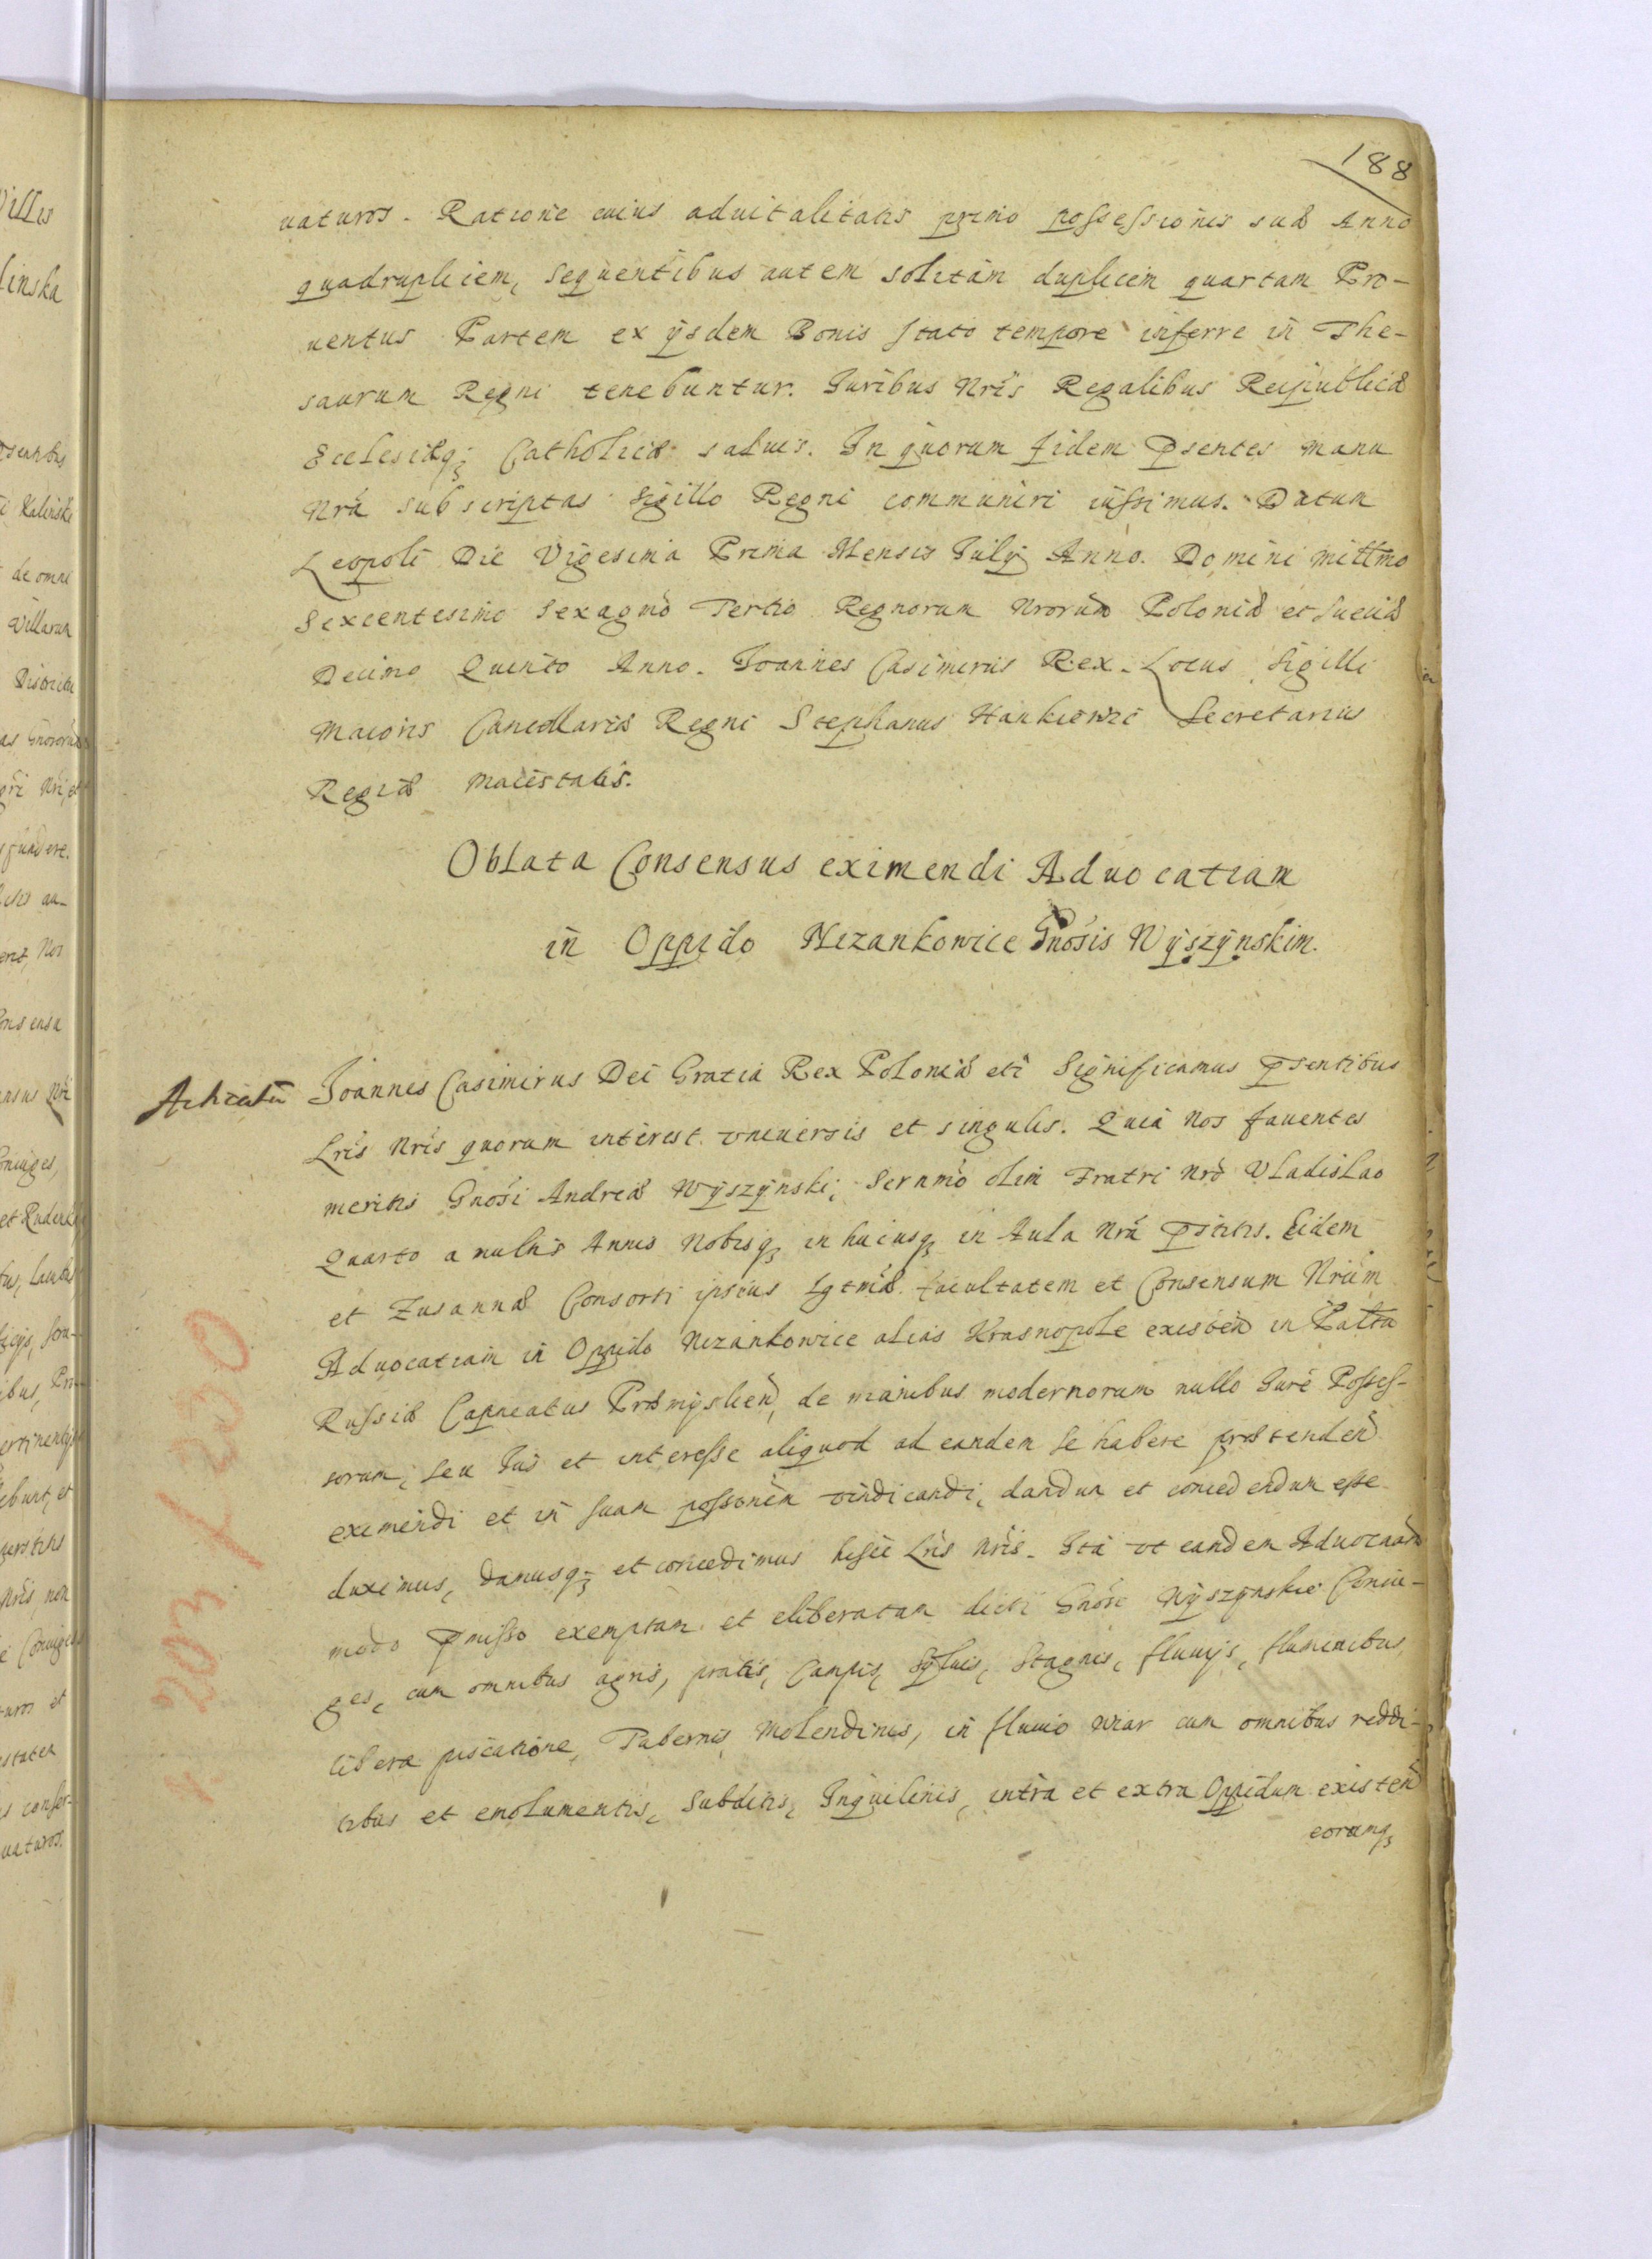 188
uaturos. Ratione cuius aduitalitatis primo possessionis suæ Anno
quadruplicem, sequentibus autem solitam duplicem quartam Pro-
uentus Partem ex ijsdem Bonis stato tempore inferre in The-
saurum Regni tenebuntur. Iuribus Nris Regalibus Reipublicæ
Ecclesiæq; Catholicæ saluis. In quorum fidem pñsentes manu
Nrá subscriptas Sigillo Regni communiri iussimus. Datum
Leopoli Die Vigesima Prima Mensis Iulij Anno. Domini Millmo
Sexcentesimo Sexagmo Tertio Regnorum Nrorum Poloniæ et Sueciæ
Decimo Quinto Anno. Ioannes Casimirus Rex. Locus Sigilli
Maioris Cancellariæ Regni Stephanus Hankiewic Secretarius
Regiæ Maiestatis.
Oblata Consensus eximendi Aduocatiam
in Oppido Nizankowice Gnosis Wÿszÿnskim.
Acticatũ
Joannes Casimirus Dei Gratia Rex Poloniæ etc Significamus psentibus
Lris Nris quorum interest vniuersis et singulis. Quia Nos fauentes
meritis Gnosi Andreæ Wÿszÿnski, Sernmo olim Fratri Nro Vladislao
Quarto a multis Annis Nobisq; in hucusq; in Aula Nrá pstitis. Eidem
et Zusannæ Consorti ipsius Lgtmæ facultatem et Consensum Nrum
Aduocatiam in Oppido Nizankowice alias Krasnopole existeñ in Paltu
Russiæ Capneatus Præmÿslieñ, de manibus modernorum nullo Iure Posses-
sorum, seu Ius et interesse aliquod ad eandem se habere prætendeñ
eximendi et in suam possonem vindicandi, dandum et concedendum esse
duximus, Damusq; et concedimus hisce Lris Nris. Ita vt eandem Aduocaam
modo pmisso exemptam et eliberatam dicti Gnosi Wÿszÿnskie Coniu-
ges, cum omnibus agris, pratis, Campis, Syluis, Stagnis, fluuijs, fluminibus
libera piscatione, Tabernis, Molendinis, in fluuio Wiar cum omnibus reddi-
tibus et emolumentis, Subditis, Inquilinis, intra et extra Oppidum existeñ
eorumq;